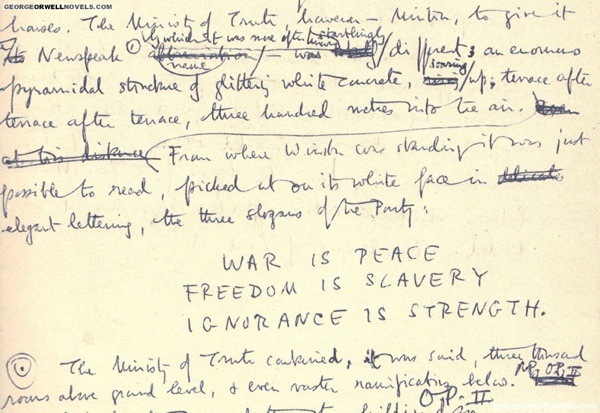 GEORGEORWELLNOVELS.COM
houses. The Ministry of Truth, however – Minitru, to give it
by which it was more often known startlingly
its Newspeak abbreviation name – was different; an enormous
pyramidal structure of glittering white concrete, soaring up, terrace after
terrace after terrace, three hundred metres into the air. Even
at this distance From where Winston was standing it was just
possible to read, picked out on its white face in delicate
elegant lettering, the three slogans of the Party:
WAR IS PEACE
FREEDOM IS SLAVERY
IGNORANCE IS STRENGTH.
The Ministry of Truth contained, it was said, three thousand
rooms above ground level, & even vaster ramifications below.